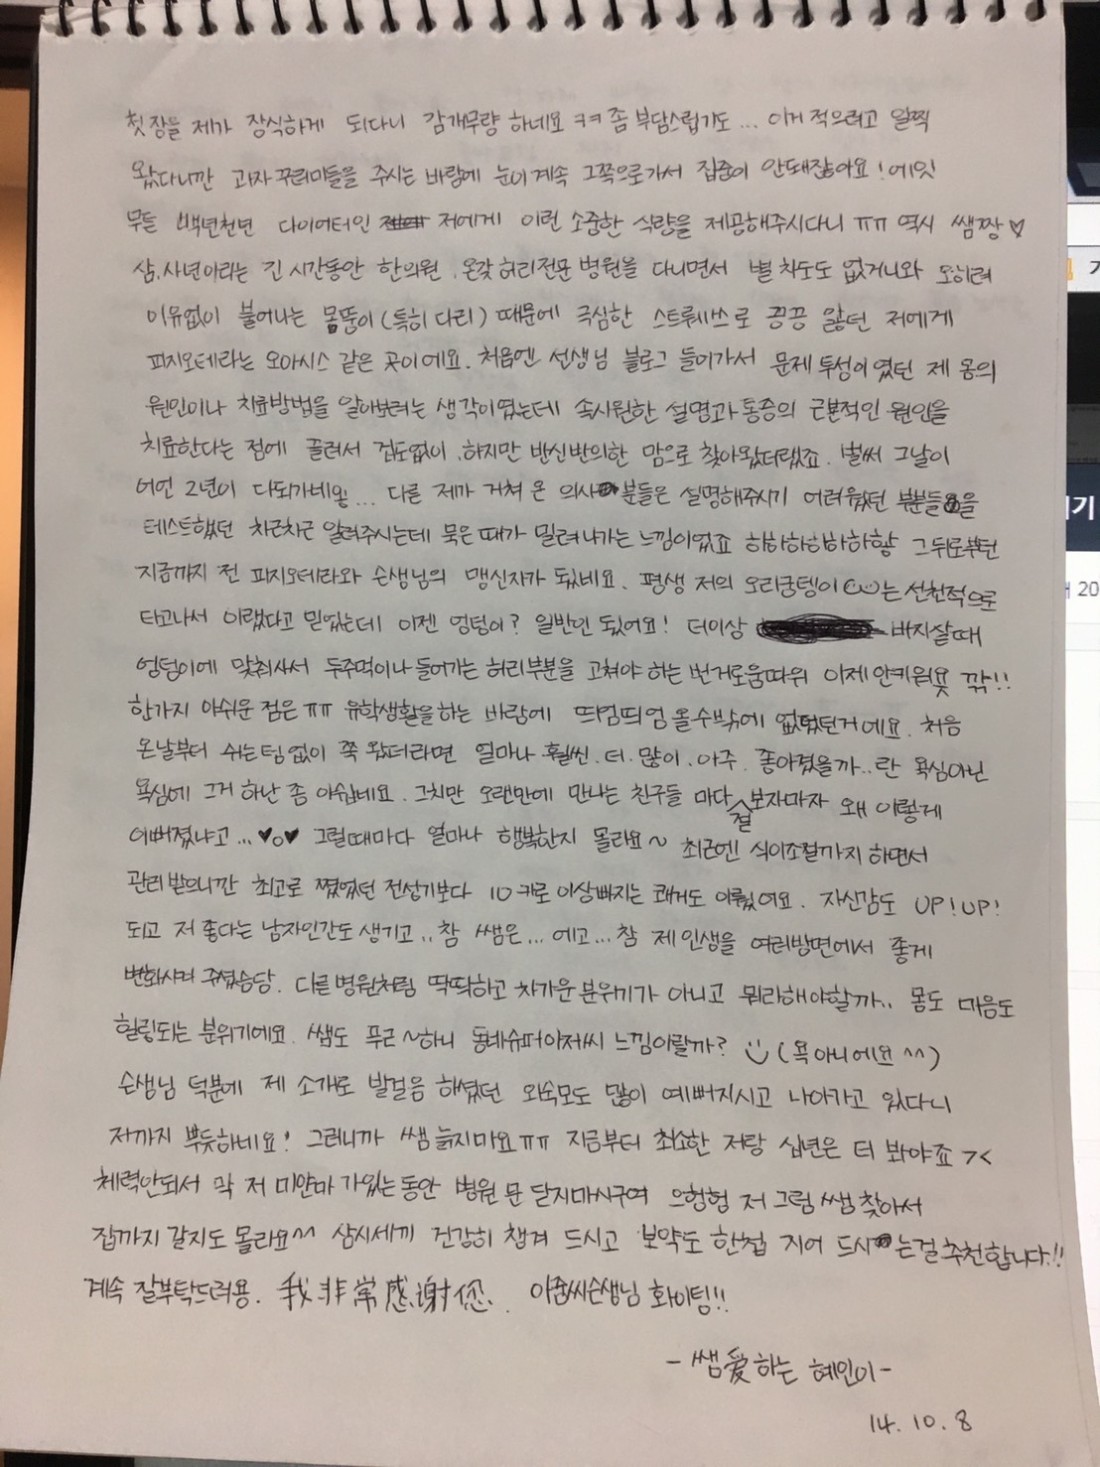 첫장을 제가 장식하게 되다니 감개무량 하네요 ㅋㅋ 좀 부담스럽기도... 이거 적으려고 일찍
왔다니깐 과자 꾸러미들을 주시는 바람에 눈이 계속 그쪽으로가서 집중이 안돼잖아요! 에잇
무튼 백년천년 다이어터인 저에게 이런 소중한 식량을 제공해주시다니 ㅠㅠ 역시 쌤짱♡
삼,사년이라는 긴 시간동안 한의원, 온갖 허리전문 병원을 다니면서 별 차도도 없거니와 오히려
이유없이 불어나는 몸뚱이(특히 다리) 때문에 극심한 스트레쓰로 끙끙 앓던 저에게
피지오테라는 오아시스 같은 곳이에요. 처음엔 선생님 블로그 들어가서 문제 투성이였던 제 몸의
원인이나 치료방법을 알아보려는 생각이였는데 속시원한 설명과 통증의 근본적인 원인을
치료한다는 점에 끌려서 겁도없이, 하지만 반신반의한 맘으로 찾아왔더랬죠. 벌써 그날이
어언 2년이 다되가네용... 다른 제가 거쳐 온 의사분들은 설명해주시기 어려웠던 부분들을
테스트했던 차근차근 알려주시는데 묵은 때가 밀려나가는 느낌이였죠 하하하하하항 그 뒤로부턴
지금까지 전 피지오테라와 손생님의 맹신자가 됬네요. 평생 저의 오리궁뎅이는 선천적으로
타고나서 이랬다고 믿었는데 이젠 엉덩이? 일반인 됬어요! 더이상 바지살때
엉덩이에 맞춰사서 두주먹이나 들어가는 허리부분을 고쳐야 하는 번거로움따위 이제 안키워욧 꺆!!
한가지 아쉬운 점은 ㅠㅠ 유학생활을하는 바람에 띄엄띄엄 올수밖에 없었던거에요. 처음
온날부터 쉬는텀없이 쭉 왔더라면 얼마나. 훨씬. 더. 많이. 아주. 좋아졌을까..란 욕심아닌
욕심에 그거 하난 좀 아쉽네요. 그치만 오랜만에 만나는 친구들 마다 절 보자마자 왜 이렇게
이뻐졌냐고...♥o♥ 그럴때마다 얼마나 행복한지 몰라요~ 최근엔 식이조절까지 하면서
관리 받으니깐 최고로 쪘었던 전성기보다 10키로 이상빠지는 쾌거도 이뤘어요. 자신감도 UP! UP!
되고 저 좋다는 남자인간도 생기고.. 참 쌤은... 에고... 참 제 인생을 여러방면에서 좋게
변화시켜 주셨슴당. 다른병원처럼 딱딱하고 차가운 분위기가 아니고 뭐라해야할까.. 몸도 마음도
힐링되는 분위기에요. 쌤도 푸근~하니 동네슈퍼아저씨 느낌이랄까? (욕 아니에요^^)
손생님 덕분에 제 소개로 발걸음 해셨던 외숙모도 많이 예뻐지시고 나아가고 있다니
저까지 뿌듯하네요! 그러니까 쌤 늙지마요ㅠㅠ 지금부터 최소한 저랑 십년은 더 봐야죠 ><
체력안되서 막 저 미얀마 가있는동안 병원 문 닫지마시구여 으헝헝 저 그럼 쌤 찾아서
집까지 갈지도 몰라요^^ 삼시세끼 건강히 챙겨 드시고 보약도 한첩 지어 드시는걸 추천합니다!!
계속 잘부탁드려용. 我非常感谢您. 아줌씨손생님 화이팅!!
- 쌤愛하는 혜인이 -
14. 10. 8